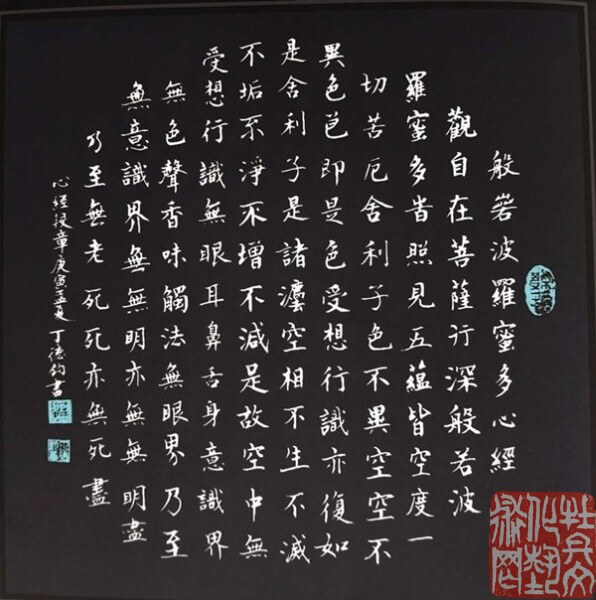 般若波羅蜜多心經
觀自在菩薩行深般若波
羅蜜多旹照見五蘊皆空度一
切苦厄舍利子色不異空空不
異色色即是色受想行識亦復如
是舍利子是諸灋空相不生不滅
不垢不淨不增不減是故空中無
受想行識無眼耳鼻舌身意識界
無色聲香味觸法無眼界乃至
無意識界無無明亦無無明盡
乃至無老死死亦無死盡
心經 章庚寅孟夏丁德鈞書